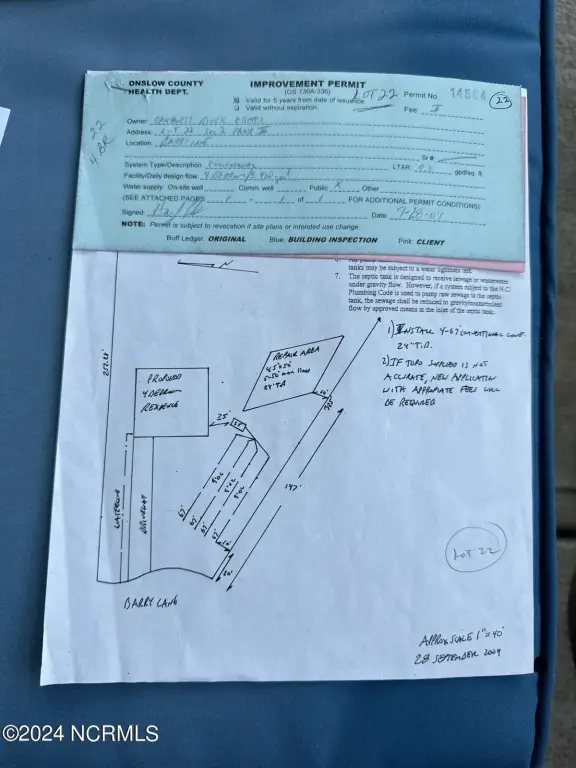 ONSLOW COUNTY
HEALTH DEPT.
IMPROVEMENT PERMIT
(GS 130A-336)
Valid for 5 years from date of issuance
Valid without expiration.
LOT 22
Permit No. 14564
22
Fee:
22
4 BR
Owner:
Address: LOT 22
Location:
Sr#
System Type/Description
LTAR: gpd/sq. ft.
Facility/Daily design flow: 4 Bedroom
Water supply: On-site well Comm. well Public X Other
(SEE ATTACHED PAGES 1 - 1 of 1 FOR ADDITIONAL PERMIT CONDITIONS)
Signed: Date: 9-28-04
NOTE: Permit is subject to revocation if site plans or intended use change.
Buff Ledger: ORIGINAL Blue: BUILDING INSPECTION Pink: CLIENT
tanks may be subject to a water tightness test.
7. The septic tank is designed to receive sewage or wastewater
under gravity flow. However, if a system subject to the N.C.
Plumbing Code is used to pump raw sewage to the septic
tank, the sewage shall be reduced to gravity
flow by approved means at the inlet of the septic tank.
N
1) INSTALL 4-67' CONVENTIONAL LINES
24" T.D.
2) IF TOPO SUPPLIED IS NOT
ACCURATE, NEW APPLICATION
WITH APPROPIATE FEES WILL
BE REQUIRED
REPAIR AREA
45'x50'
24" T.D
PROPOSED
4 BEDROOM
RESIDENCE
25'
10'
9'OC
9'OC
9'OC
67'
67'
67'
67'
10'
20'
147'
WATERLINE
DRIVEWAY
BARRY LANE
LOT 22
APPROX SCALE 1"=40'
28 SEPTEMBER 2004
©2024 NCRMLS